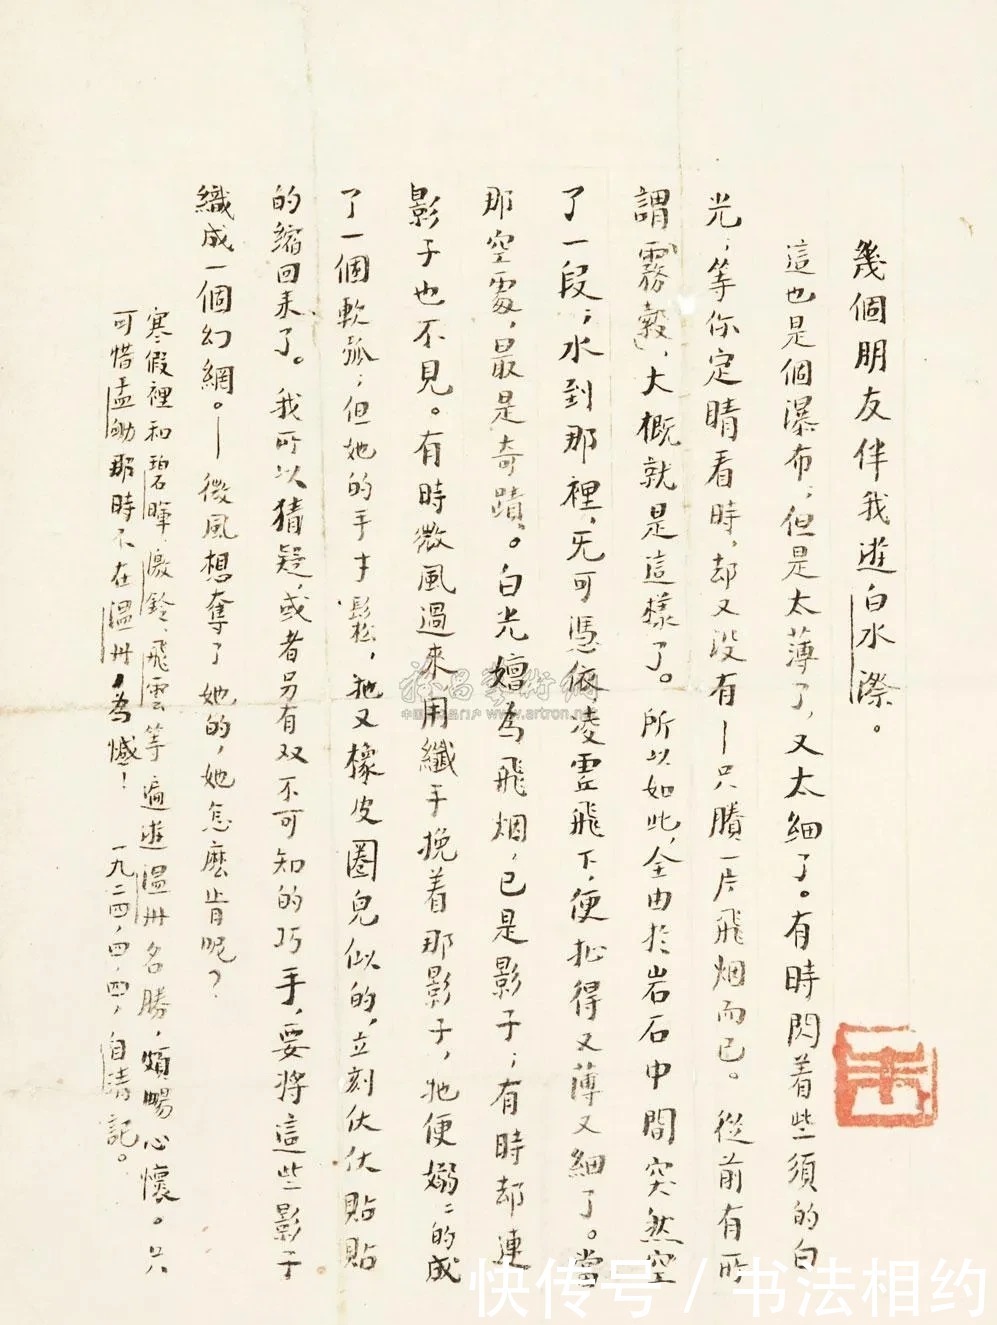 幾個朋友伴我遊白水漈。
這也是個瀑布；但是太薄了，又太細了。有時閃着些須的白
光；等你定睛看時，却又沒有——只賸一片飛烟而已。從前有所
謂「霧縠」，大概就是這樣了。所以如此，全由於岩石中間突然空
了一段；水到那裡，无可憑依，凌雲飛下，便扯得又薄又細了。當
那空處，最是奇蹟。白光嬗為飛烟，已是影子；有時却連
影子也不見。有時微風過來，用纖手挽着那影子，牠便嫋〻的成
了一個軟弧；但她的手才鬆，牠又橡皮圈兒似的，立刻伏伏貼貼
的縮回來了。我所以猜疑，或者另有双不可知的巧手，要將這些影子
織成一個幻網。——微風想奪了她的，她怎麼肯呢？
寒假裡和碧暉、激鈴、飛雲等遍遊溫州名勝，頗暢心懷。只
可惜孟劬那時不在溫州，為憾！ 一九二四，四，四，自清記。
雅昌藝術網
中国艺术品门户 www.artron.net
快传号 / 书法相约